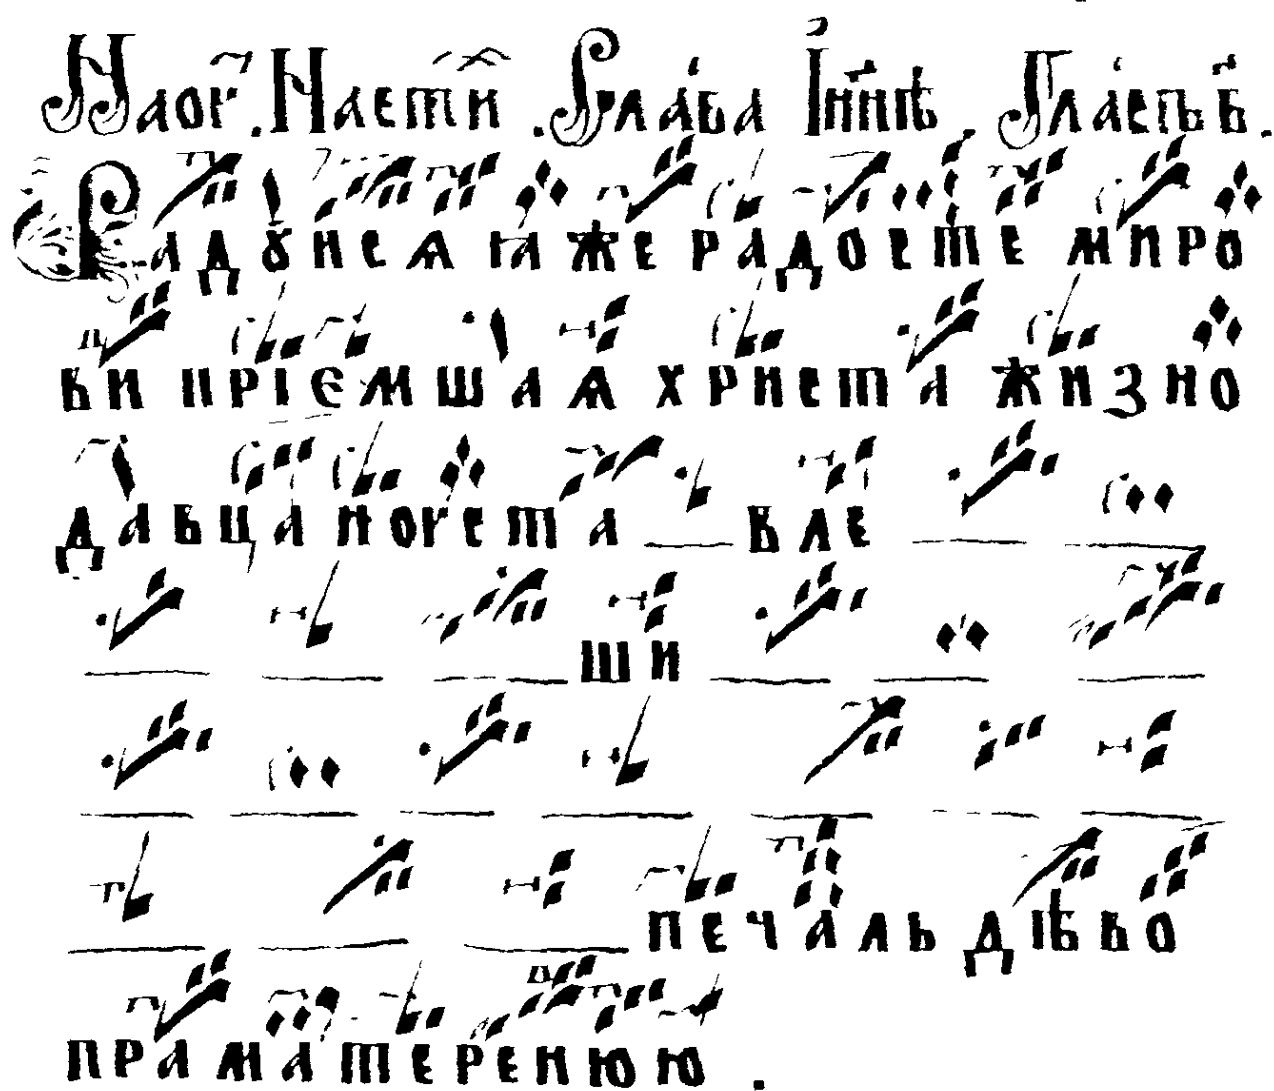 Наоу. Насти. Слава Іннѣ. Гласъ в҃.
Радꙋисѧ ꙗже радосте миро
ви прїемшаѧ христа жизно
давца иоуста вле
ши
печаль дѣво
праматеренюю.